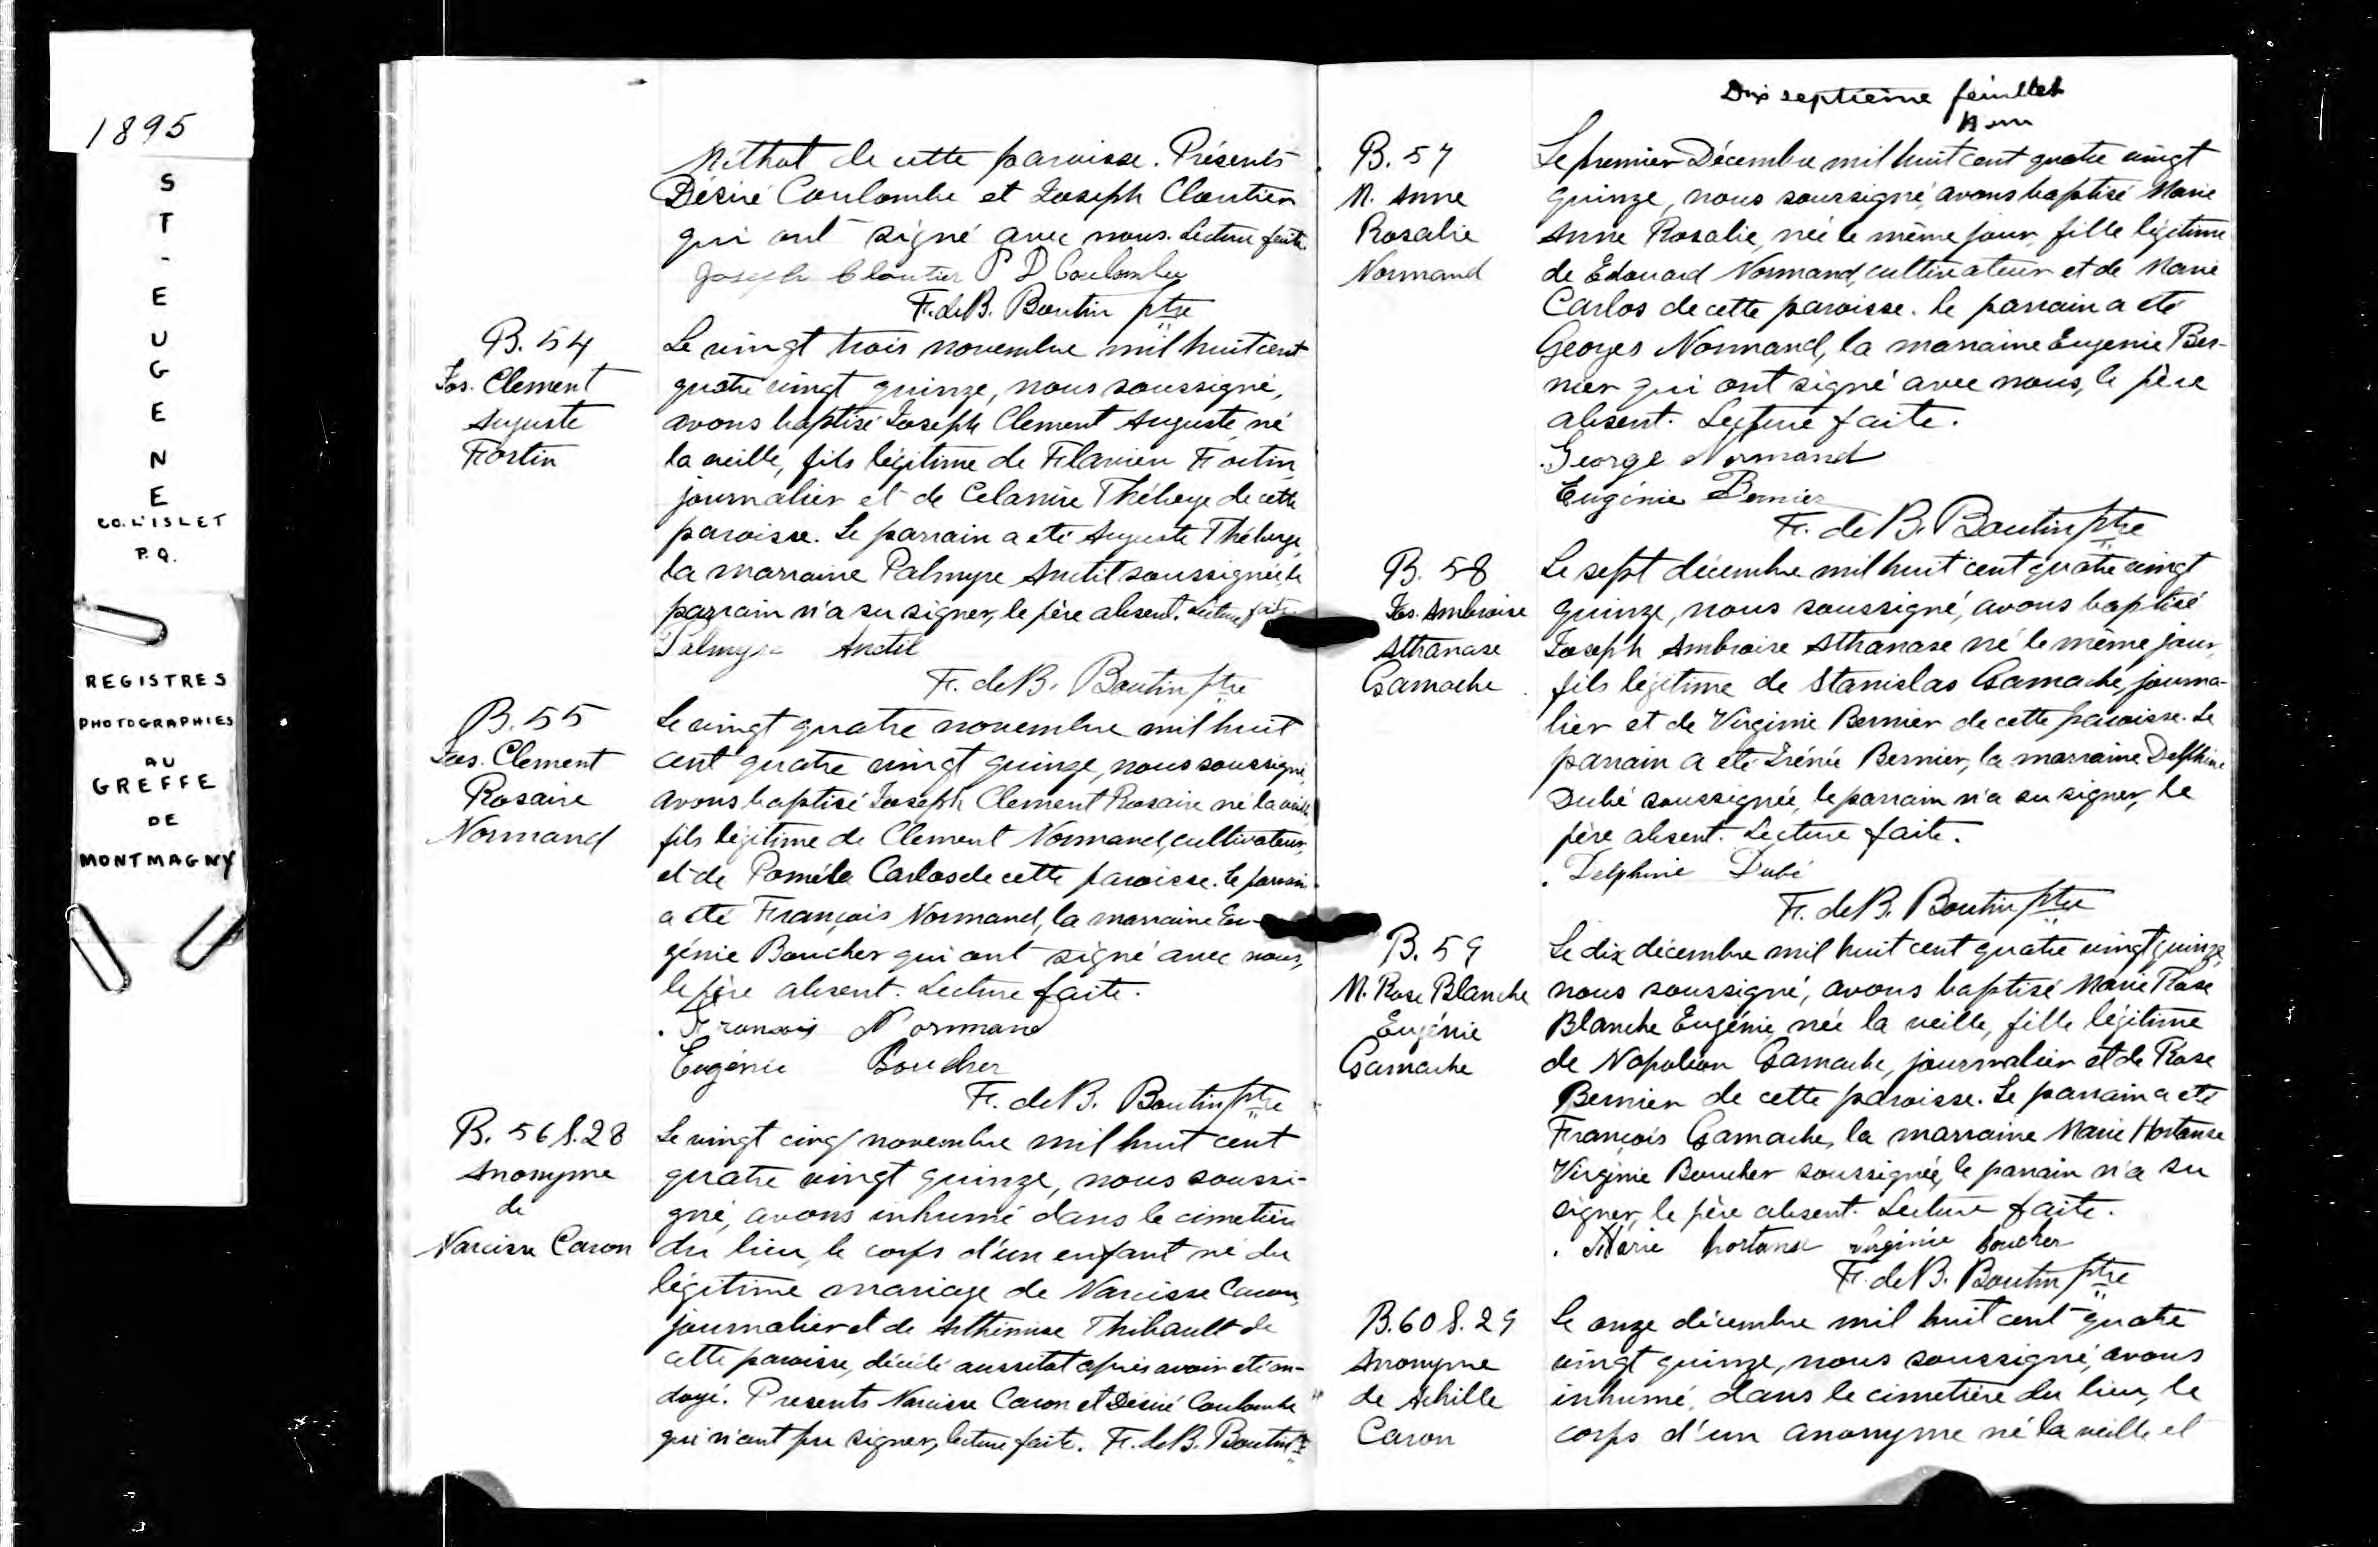 1895
ST-EUGENE
CO. L'ISLET
P.Q.
REGISTRES
PHOTOGRAPHIES
AU
GREFFE
DE
MONTMAGNY
Méthot de cette paroisse. Présents
Désiré Coulombe et Joseph Cloutier
qui ont signé avec nous. Lecture faite.
Joseph Cloutier P D Coulombe
F. de B. Boutin ptre
B. 54
Jos. Clement
Auguste
Fortin
Le vingt trois novembre mil huit cent
quatre vingt quinze, nous soussigné,
avons baptisé Joseph Clement Auguste né
la veille, fils légitime de Flavien Fortin
journalier et de Celanire Théberge de cette
paroisse. Le parrain a été Auguste Théberge,
la marraine Palmyre Anctil soussignée, le
parrain n'a su signer, le père absent. Lecture faite.
Palmyre Anctil
F. de B. Boutin ptre
B. 55
Jos. Clement
Rosaire
Normand
Le vingt quatre novembre mil huit
cent quatre vingt quinze, nous soussigné,
avons baptisé Joseph Clement Rosaire né la veille,
fils légitime de Clement Normand, cultivateur,
et de Paméla Carlos de cette paroisse. Le parrain
a été François Normand, la marraine Eu-
génie Boucher qui ont signé avec nous,
le père absent. Lecture faite.
. Francois Normand
Eugénie Boucher
F. de B. Boutin ptre
B. 56 S. 28
Anonyme
de
Narcisse Caron
Le vingt cinq novembre mil huit cent
quatre vingt quinze, nous soussi-
gné, avons inhumé dans le cimetière
du lieu, le corps d'un enfant né du
légitime mariage de Narcisse Caron,
journalier et de Arthimise Thibault de
cette paroisse, décédé aussitot après avoir été on-
doyé. Presents Narcisse Caron et Désiré Coulombe
qui n'ont pu signer, lecture faite. F. de B. Boutin ptre
Dix septième feuillet
B. 57
M. Anne
Rosalie
Normand
Le premier Décembre mil huit cent quatre vingt
quinze, nous soussigné, avons baptisé Marie
Anne Rosalie, née le même jour, fille légitime
de Edouard Normand, cultivateur et de Marie
Carlos de cette paroisse. le parrain a été
Georges Normand, la marraine Eugenie Ber-
nier qui ont signé avec nous, le père
absent. Lecture faite.
. George Normand
Eugénie Bernier
F. de B. Boutin ptre
B. 58
Jos. Ambroise
Athanase
Gamache
Le sept décembre mil huit cent quatre vingt
quinze, nous soussigné, avons baptisé
Joseph Ambroise Athanase né le même jour,
fils légitime de Stanislas Gamache, journa-
lier et de Virginie Bernier de cette paroisse. Le
parrain a été Irénée Bernier, la marraine Delphine
Dubé soussignée, le parrain n'a su signer, le
père absent. Lecture faite.
. Delphine Dubé
F. de B. Boutin ptre
B. 59
M. Rose Blanche
Eugénie
Gamache
Le dix décembre mil huit cent quatre vingt quinze,
nous soussigné, avons baptisé Marie Rose
Blanche Eugénie, née la veille, fille légitime
de Napoléon Gamache, journalier et de Rose
Bernier de cette paroisse. Le parrain a été
François Gamache, la marraine Marie Hortense
Virginie Boucher soussignée, le parrain n'a su
signer, le père absent. Lecture faite.
. Marie hortense virginie boucher
F. de B. Boutin ptre
B. 60 S. 29
Anonyme
de Achille
Caron
Le onze décembre mil huit cent quatre
vingt quinze, nous soussigné, avons
inhumé, dans le cimetière du lieu, le
corps d'un anonyme né la veille et